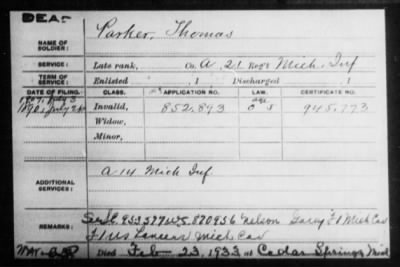 DEAF
NAME OF SOLDIER: Parker, Thomas
SERVICE: Late rank, Co. A, 21 Reg't Mich. Inf
TERM OF SERVICE: Enlisted , 1 Discharged , 1
DATE OF FILING. CLASS. APPLICATION NO. LAW. CERTIFICATE NO.
1890, July Invalid, 852.893 945.773
Widow,
Minor,
ADDITIONAL SERVICES: A 14 Mich Inf
REMARKS: 870936 Nelson F 1 Mich Cav
F 1 US Lancers Mich Cav
Died Feb 23, 1933 at Cedar Springs, Mich